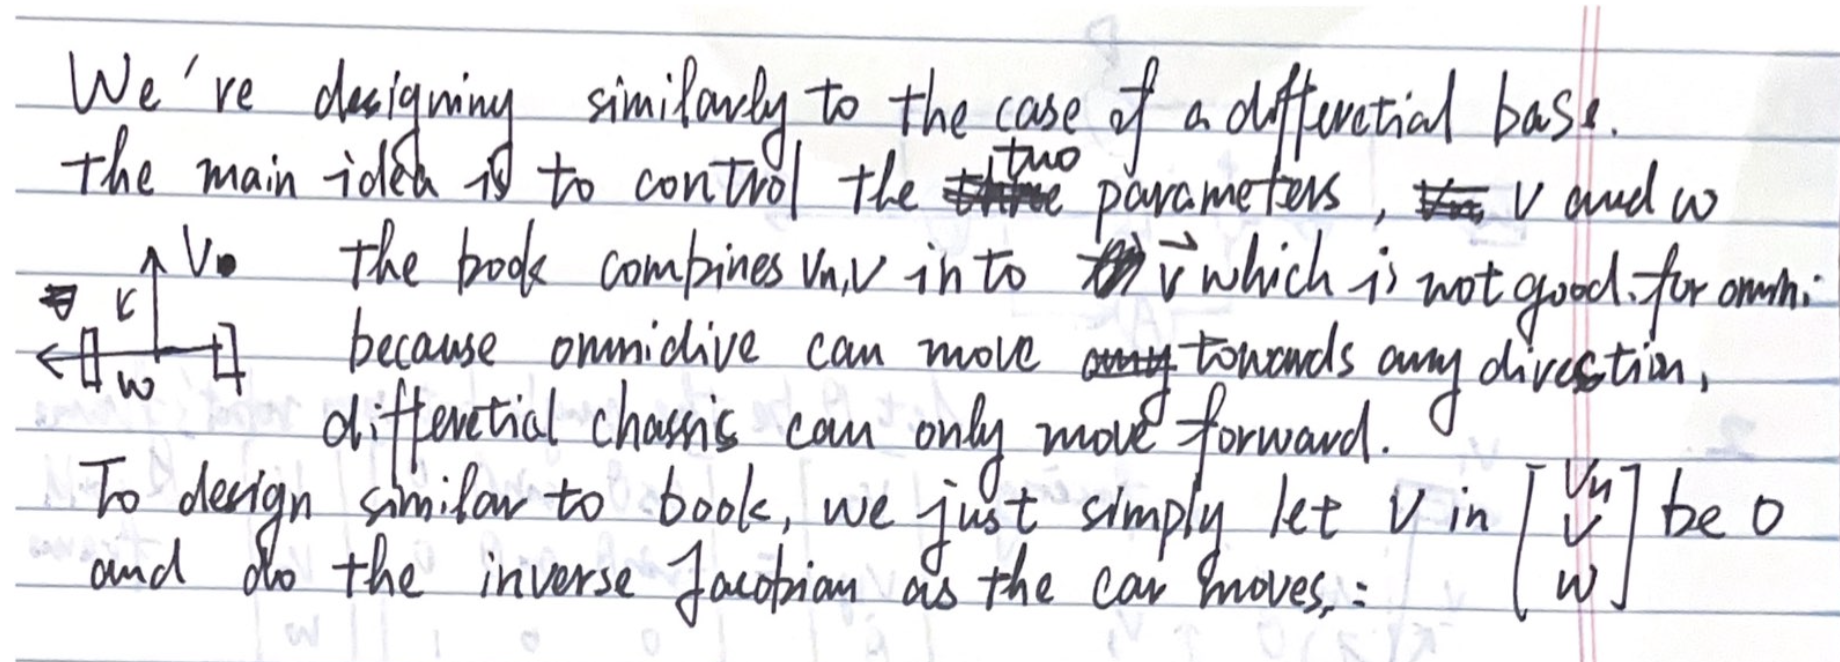 We're designing similarly to the case of a differetial base.
the main idea is to control the two parameters, v and w
Vn the book combines Vn,V in to v⃗ which is not good. for omni
r because omnidive can move towards any direction,
w
differetial chassis can only move forward.
To design similar to book, we just simply let V in [Vn V w] be 0
and do the inverse Jacobian as the car moves,: